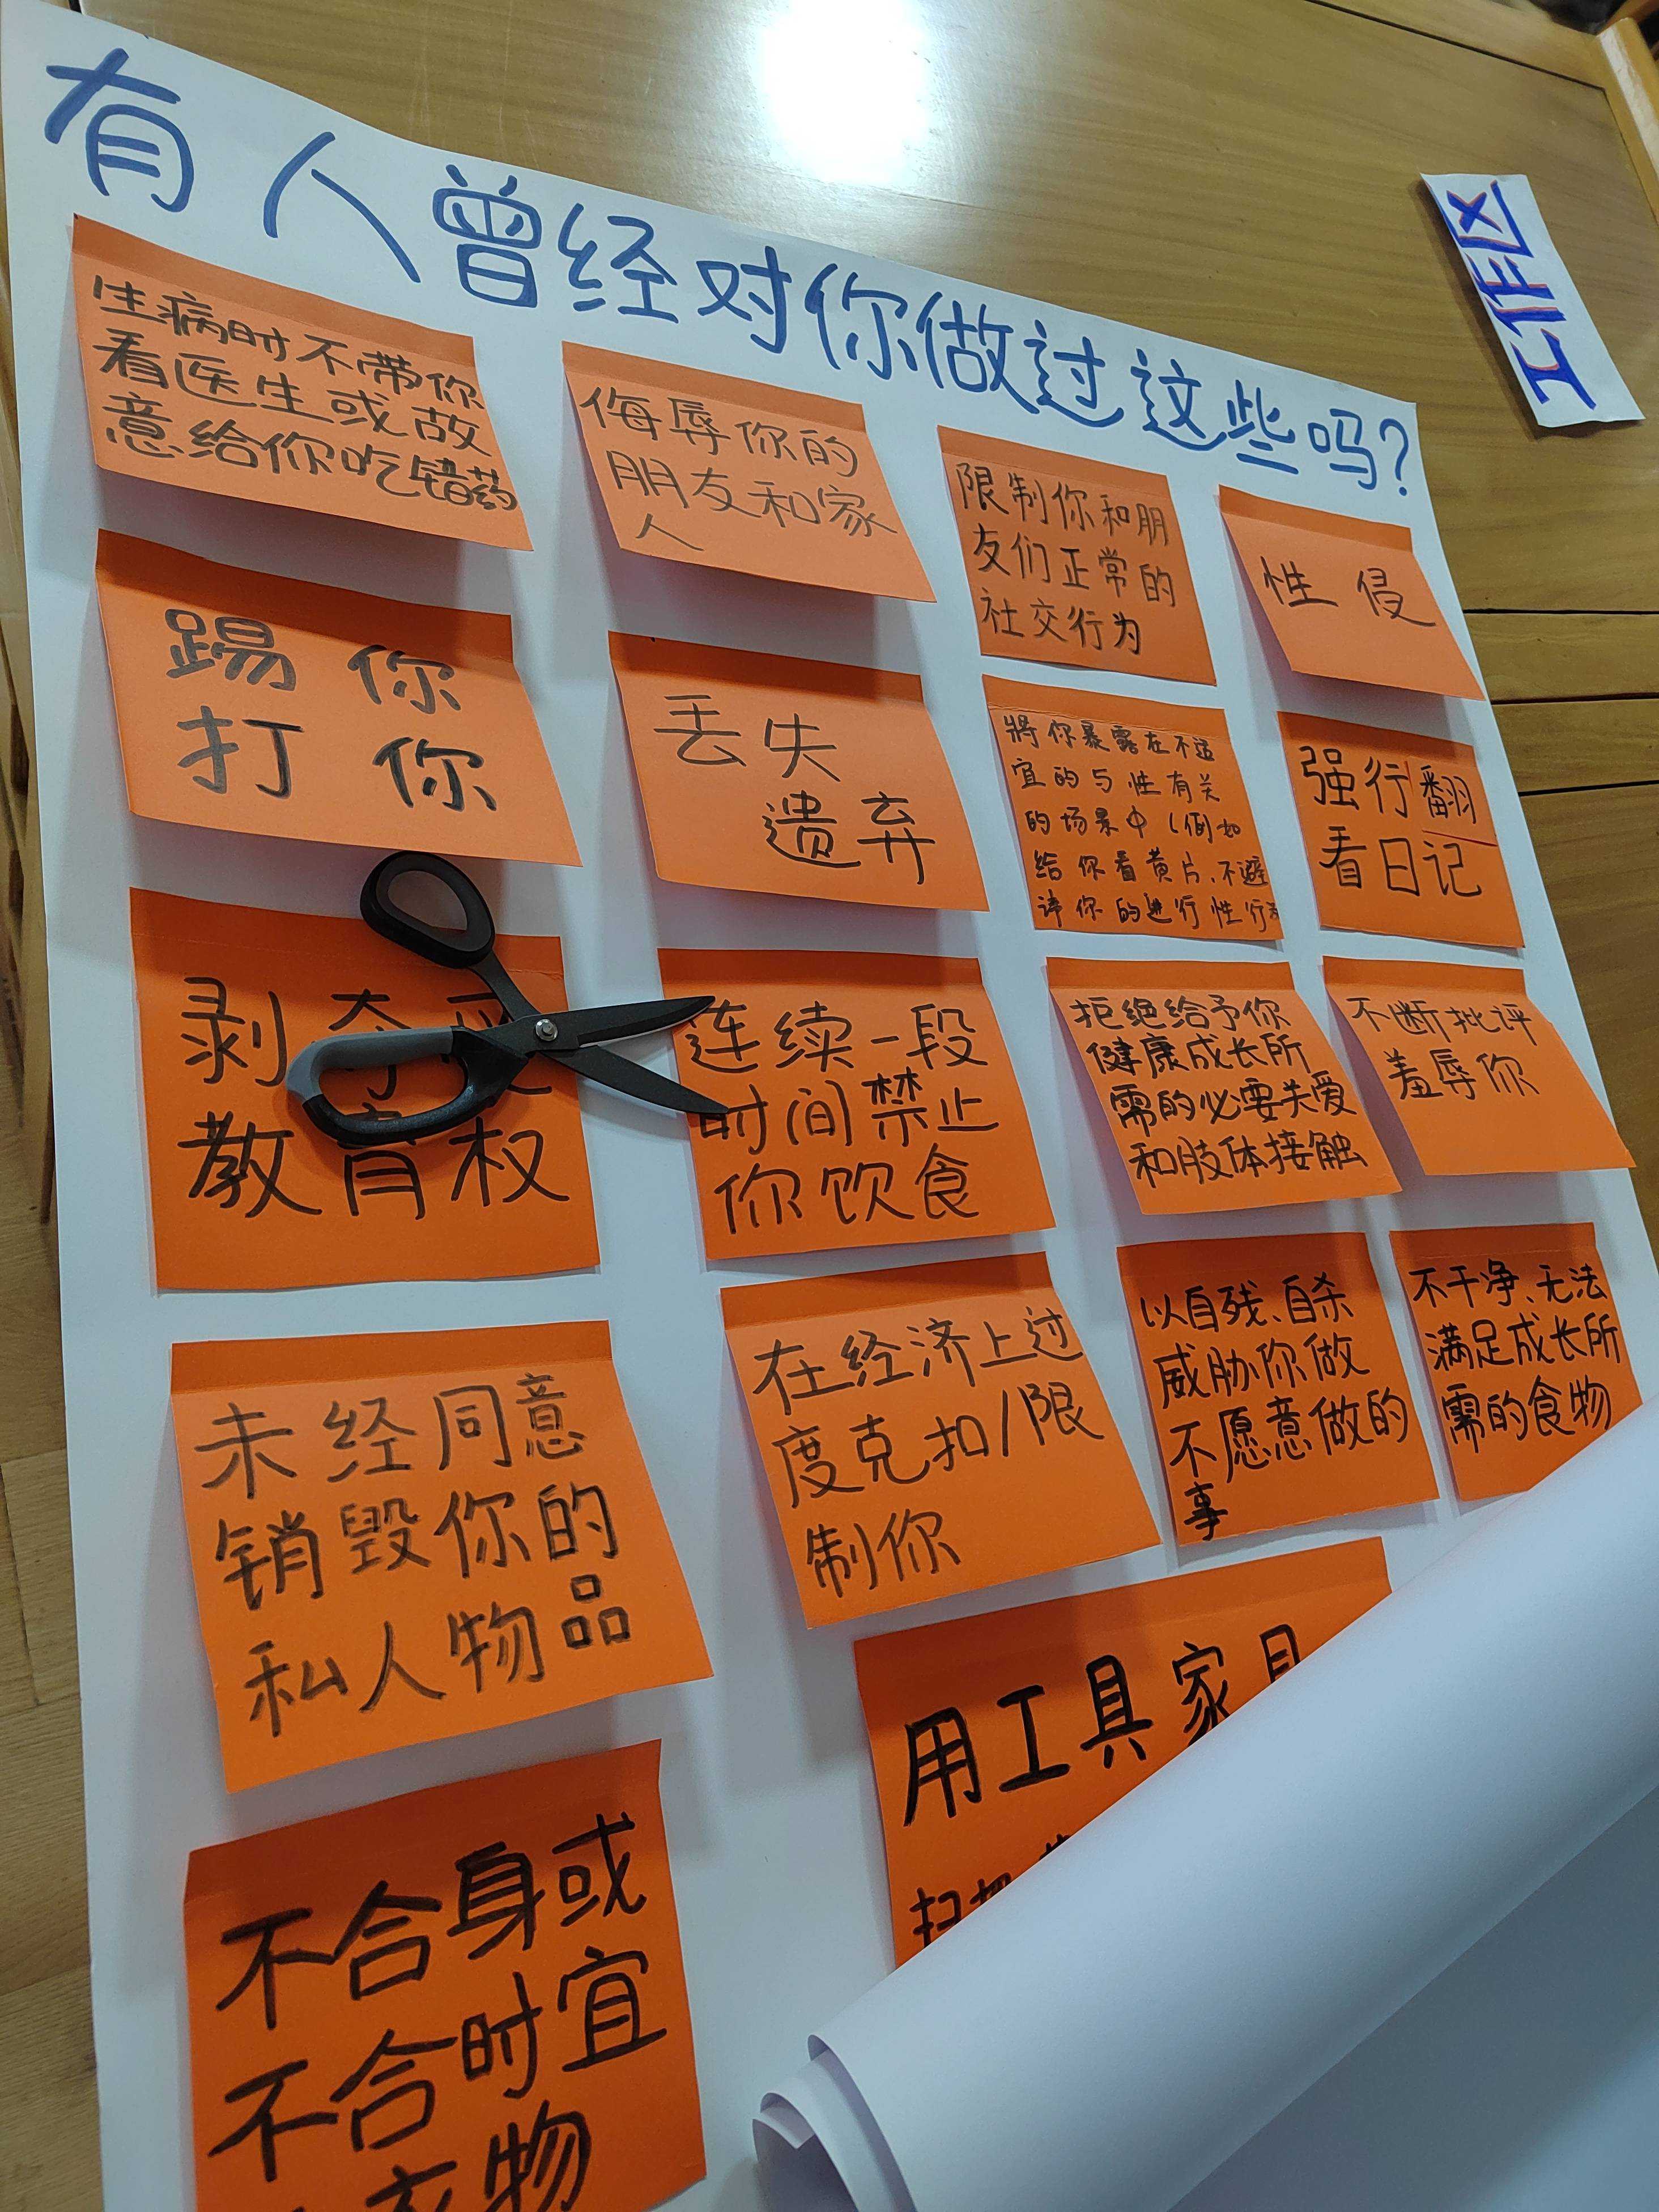 有人曾经对你做过这些吗?
工作区
生病时不带你
看医生或故
意给你吃错药
侮辱你的
朋友和家
人
限制你和朋
友们正常的
社交行为
性侵
踢你
打你
丢失
遗弃
将你暴露在不适
宜的与性有关
的场景中(例如
给你看黄片、不避
讳你的进行性行为
强行翻
看日记
剥夺
教育权
连续一段
时间禁止
你饮食
拒绝给予你
健康成长所
需的必要关爱
和肢体接触
不断批评
羞辱你
未经同意
销毁你的
私人物品
在经济上过
度克扣/限
制你
以自残、自杀
威胁你做
不愿意做的
事
不干净、无法
满足成长所
需的食物
用工具家具
扫把
不合身或
不合时宜
衣物